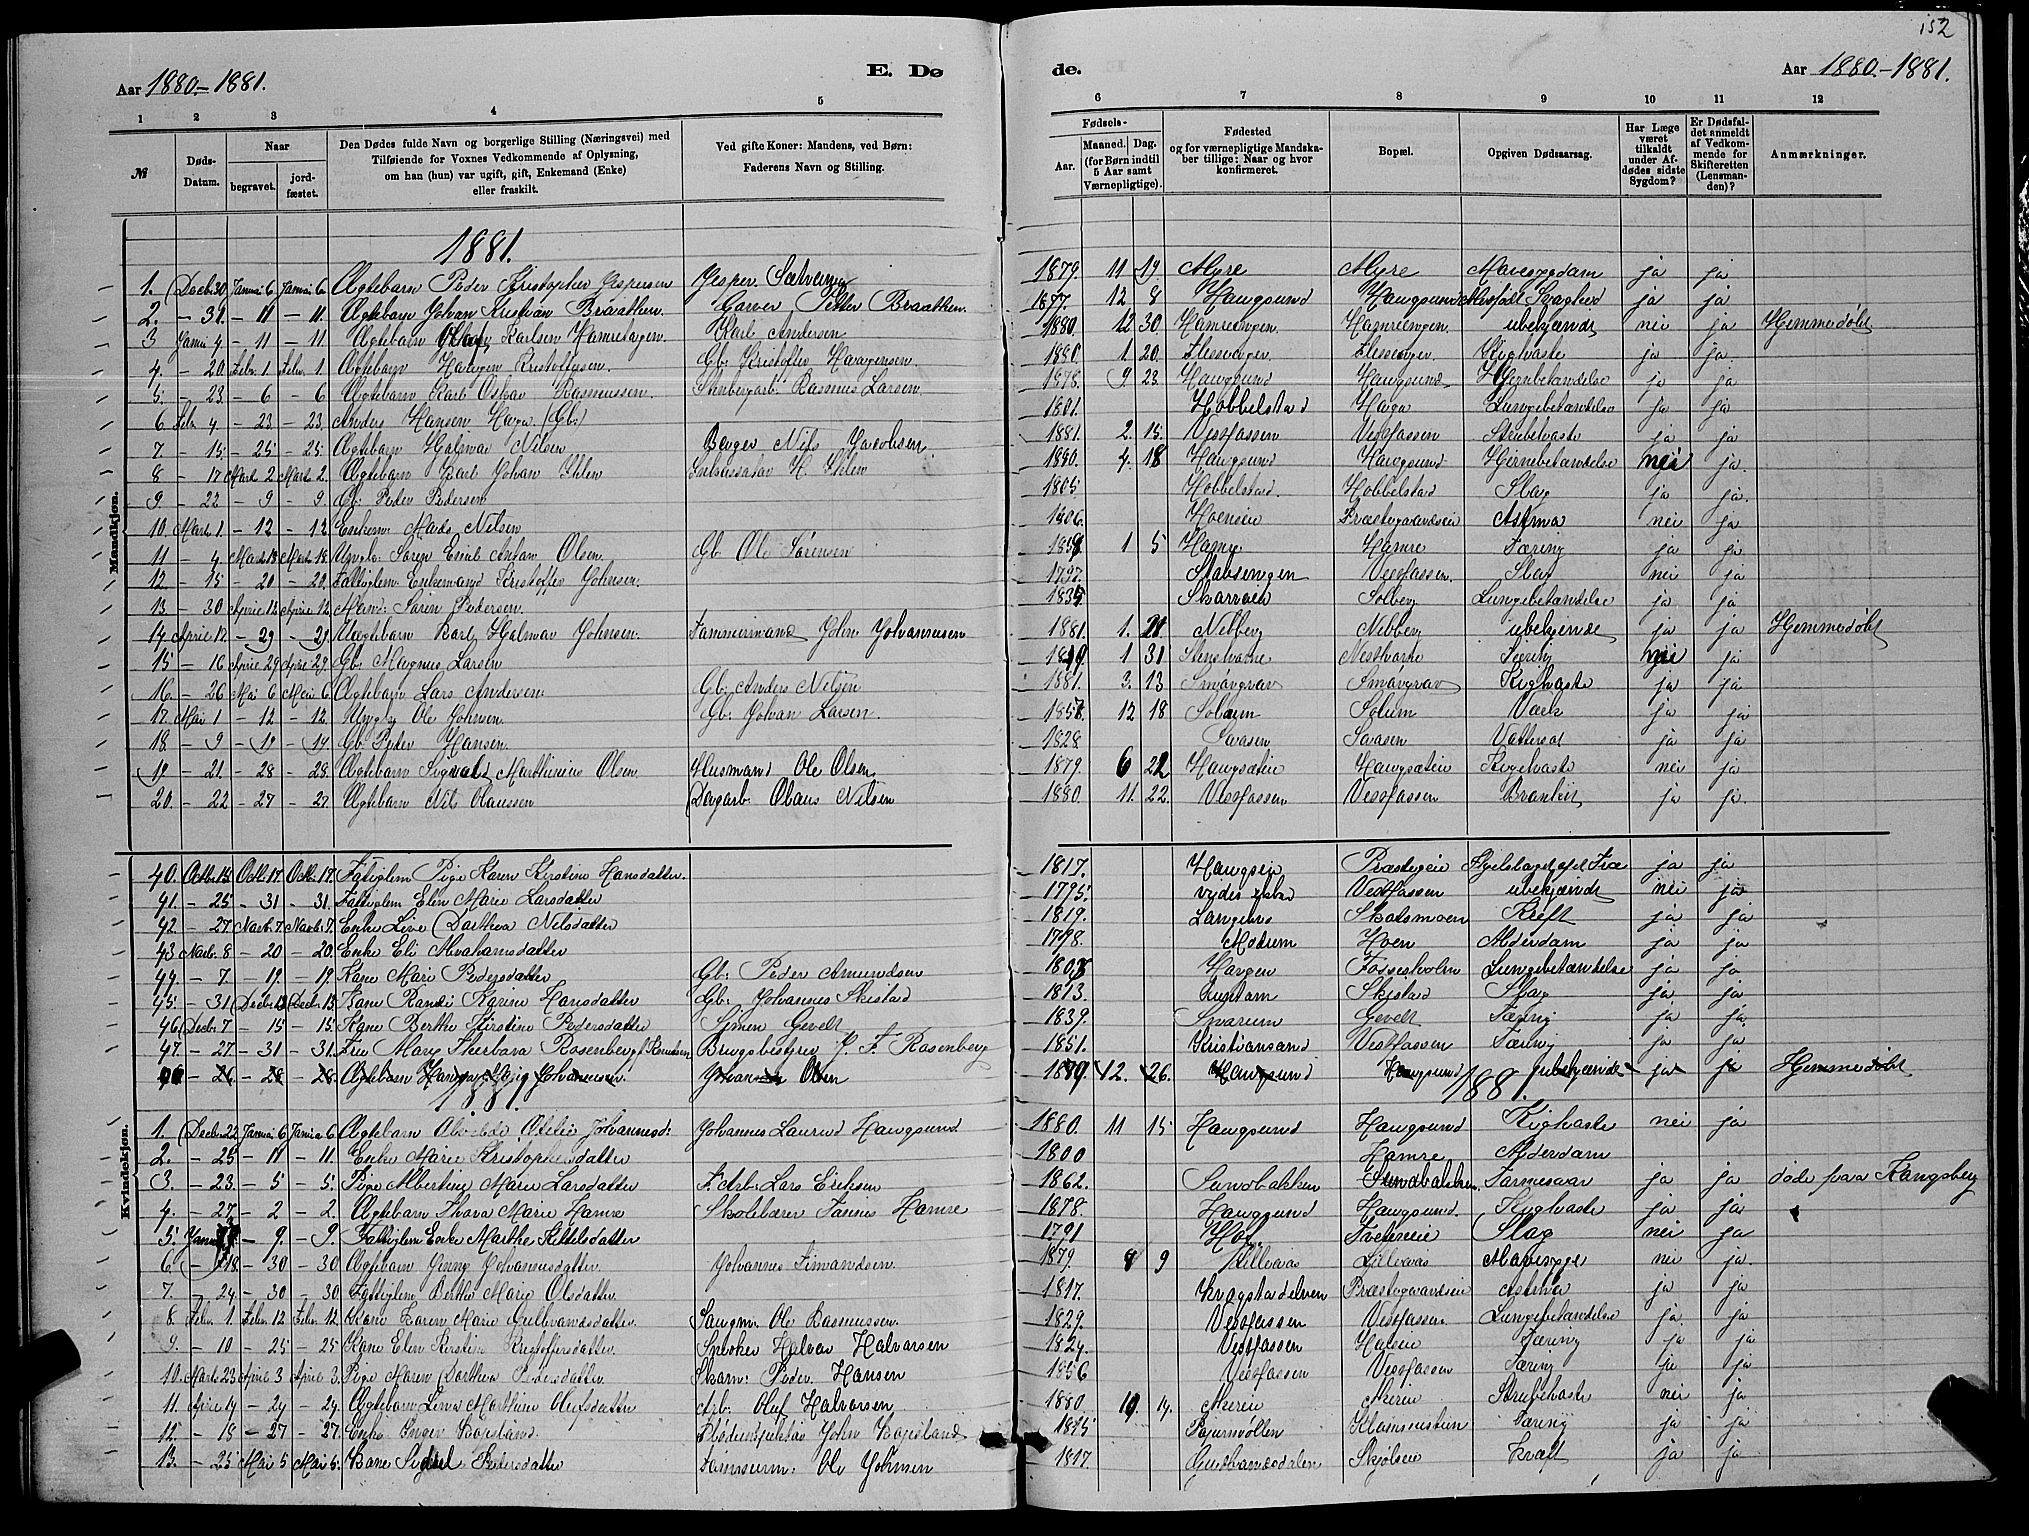 152
Aar 1880.-1881. E. Dø de. Aar 1880.-1881.
1 2 3 4 5 6 7 8 9 10 11 12
№ Døds-Datum. Naar begravet. jord-fæstet. Den Dødes fulde Navn og borgerlige Stilling (Næringsvei) med Tilføiende for Voxnes Vedkommende af Oplysning, om han (hun) var ugift, gift, Enkemand (Enke) eller fraskilt. Ved gifte Koner: Mandens, ved Børn: Faderens Navn og Stilling. Fødsels- Aar. Maaned. Dag. (for Børn indtil 5 Aar samt Værnepligtige). Fødested og for værnepligtige Mandska-ber tillige: Naar og hvor konfirmeret. Bopæl. Opgiven Dødsaarsag. Har Læge været tilkaldt under Af-dødes sidste Sygdom? Er Dødsfal-det anmeldt af Vedkom-mende for Skifteretten (Lensman-den)? Anmærkninger.
Mandkjøn.
1881.
1. Decbr. 30 Januar 6 Januar 6 Ægtebarn Peder Kristopher Jespersen Jesper Sætvang 1879. 11 19. Myre Myre Mavesygdom ja ja
2. - 31. - 11 - 11. Ægtebarn Johan Kristian Braathen. Garver Petter Braathen. 1877 12 8 Haugsund Haugsund Medfødt Svaghed ja ja
3 Janu 4 - 11 - 11 Ægtebarn Karlsen Hamreengen. Karl Andersen 1880. 12 30. Hamreengen. Hamreengen. ubekjendt nei ja Hjemmedøbt
4. - 20. Febr. 1. Febr. 1. Ægtebarn Haagen Kristoffersen. Gb. Kristoffer Haagensen. 1880. 1. 20. Flesseager Flesseager Kighoste ja ja.
5. - 23. - 6 - 6 Ægtebarn Karl Oskar Rasmussen. Rasmus Larsen. 1878. 9. 23. Haugsund Haugsund Hjernebetændelse ja ja
6 Febr. 4 - 23 - 23. Anders Hansen Haga (Gb.) 1801. Hobbelstad Haga Lungebetændelse ja ja
7 - 15. - 25 - 25. Ægtebarn Hjalmar Nilsen Nils Jacobsen. 1881. 2. 15. Vestfossen Vestfossen Strubehoste ja ja
8 - 17 Marts 2 Marts 2. Ægtebarn Karl Johan Ihlen H. Ihlen 1880. 4. 18 Haugsund Haugsund Hjernebetændelse nei ja.
9. - 22 - 9 - 9. Gb: Peder Pedersen 1805. Hobbelstad. Hobbelstad Slag ja ja.
10. Marts 1. - 12 - 12 Enkem. Mads Nilsen 1806. Hoenseie Præstegaardseie Astma nei ja
11 - 4 Marts 18 Marts 18. Ungk. Søren Emil Anton Olsen. Gb. Ole Sørensen 1 5 Hamre Hamre Tæring ja ja.
12. - 15 - 20 - 20. Fattiglem. Enkemand Kristoffer Johnsen. 1797. Slaasengen Vestfossen. Slag nei ja
13. - 30 April 12 April 12. Mand: Søren Pedersen. Skarraak Solberg Lungebetændelse ja ja
14. April 12 - 29 - 29 Uægtebarn Karl Hjalmar Johnsen. Tømmermand John Johannessen 1881. 1. 21 Nebberg Nebberg ubekjendt ja ja Hjemmedøbt
15 - 16 April 29 April 29 Gb: Magnus Larsen 1 31 Stenshorne Nestborne Tæring nei ja
16. - 26 Mai 6 Mai 6. Ægtebarn Lars Andersen. Gb: Anders Nilsen 1881. 3. 13 Smaagrav Smaagrav Kighoste ja ja
17. Mai 1 - 12 - 12. Ungk. Ole Johnsen. Gb: Johan Larsen. 12 18 Solum Solum Værk ja ja
18. - 9 - 19 - 19 Gb. Peder Hansen. 1828 Saasen Saasen Vattersot ja ja
19 - 21. - 28 - 28. Ægtebarn Sigvald Marthinius Olsen. Husmand Ole Olsen. 1879. 6 22 Haugsæteie Haugsæteie Kighoste nei ja
20. - 22 - 27 - 27 Ægtebarn Nils Olaussen Dagarb. Olaus Nilsen 1880. 11. 22. Vestfossen Vestfossen Bronkit ja ja.
Kvindekjøn.
40. Octbr. 15 Octbr. 17. Octbr. 17. Fattiglem Pige Karen Kirstine Hansdatter. 1817. Haugseie Præsteeie ja ja
41. - 25 - 31 - 31. Fattiglem Elen Marie Larsdatter 1795. Vestfossen ubekjendt nei ja
42 - 27 Novbr. 7. Novbr. 7. Enke Live Dorthea Nilsdatter 1819. Langerud Skotsmoen Kreft ja ja
43 Novbr. 8 - 20 - 20. Enke Eli Abrahamsdatter 1798. Modum Hoen Alderdom ja ja
44. - 7. - 19 - 19. Kone Marie Pedersdatter Gb: Peder Amundsen Haugen Fossesholm Lungebetændelse ja ja
45. - 31 Decbr. 13 Decbr. 13. Kone Randi Karine Hansdatter Gb: Johannes Skistad 1813. Rustam Skjstad Slag ja ja
46. Decbr. 7 - 15 - 15. Kone Berthe Kirstine Pedersdatter Simen Gevelt 1839. Svarum Gevelt Tæring ja ja.
47. - 27 - 31 - 31. Fru Mary Therbara Rosenberg f. Knudsen Brugsbestyrer P. F. Rosenberg 1851. Kristiansand Vestfossen Tæring ja ja
- 26 - 28 - 28 Ægtebarn Johannesen. Johannes Olsen 1879. 12. 26. Haugsund Haugsund ubekjendt ja ja Hjemmedøbt
1881. 1881.
1. Decbr. 22 Januar 6 Januar 6 Ægtebarn Otilie Johannesd: Johannes Laurud Haugsund 1880. 11 15 Haugsund Haugsund Kighoste nei ja
2. - 25 - 11 - 11. Enke Marie Kristophersdatter 1800 Hamre Alderdom
3. - 23. - 5 - 5 Pige Albertine Marie Larsdatter F. Arb. Lars Eriksen 1862. Sundbakken Sundbakken Tarmesaar ja ja døde paa Kongsberg
4. - 27. - 2 - 2. Ægtebarn Thora Marie Hamre Skolelærer Hamre 1878. Haugsund Haugsund. Kighoste ja ja.
5. Januar - 9. - 9. Fattiglem Enke Marthe Kittelsdatter 1791 Hof. Tveteneie Slag nei ja
6 - 18. - 30 - 30 Ægtebarn Jenny Johannesdatter. Johannes Simensen. 1879. 9 Lillevaas Lillevaas Mavesyge nei ja.
7. - 24. - 30 - 30 Fattiglem Berthe Marie Olsdatter. 1817. Krogstadelven Præstegaardseie Astma ja ja
8 Febr. 1. Febr. 12 Febr. 12. Kone Karen Marie Gulbrandsdatter Saugm. Ole Rasmussen. 1829. Vestfossen Vestfossen Lungebetændelse ja ja.
9. - 10 - 25 - 25 Kone Elen Kirstine Kristoffersdatter Halvor Halvorsen 1824. Vestfossen Tæring ja ja
10. Marts 23 April 3 April 3. Pige Maren Dorthea Pedersdatter. Skom: Peder Hansen 1856 Vestfossen Vestfossen Tæring ja ja
11. April 4 - 24 - 24. Ægtebarn Lina Marthine Olufsdatter Arb: Oluf Halvorsen 1880 10 14. Strubehoste nei ja
12. - 18 - 27 - 27. Enke Inger Kopsland. John Kopsland Bjørnvolten Tæring ja ja
13. - 25 Mai 5 Mai 5. Kone Sidsel Pedersdatter Tømmerm. Ole Johnsen 1817. Gudbrandsdalen Skjølseie kræft ja ja